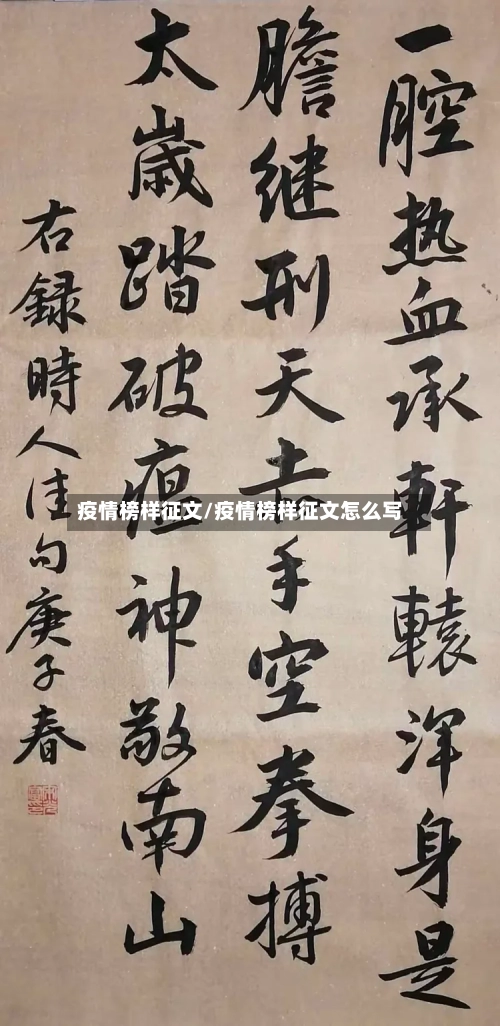 一腔热血承軒轅浑身是
膽继刑天赤手空拳搏
太歲踏破瘟神敬南山
右録時人佳句庚子春
疫情榜样征文/疫情榜样征文怎么写